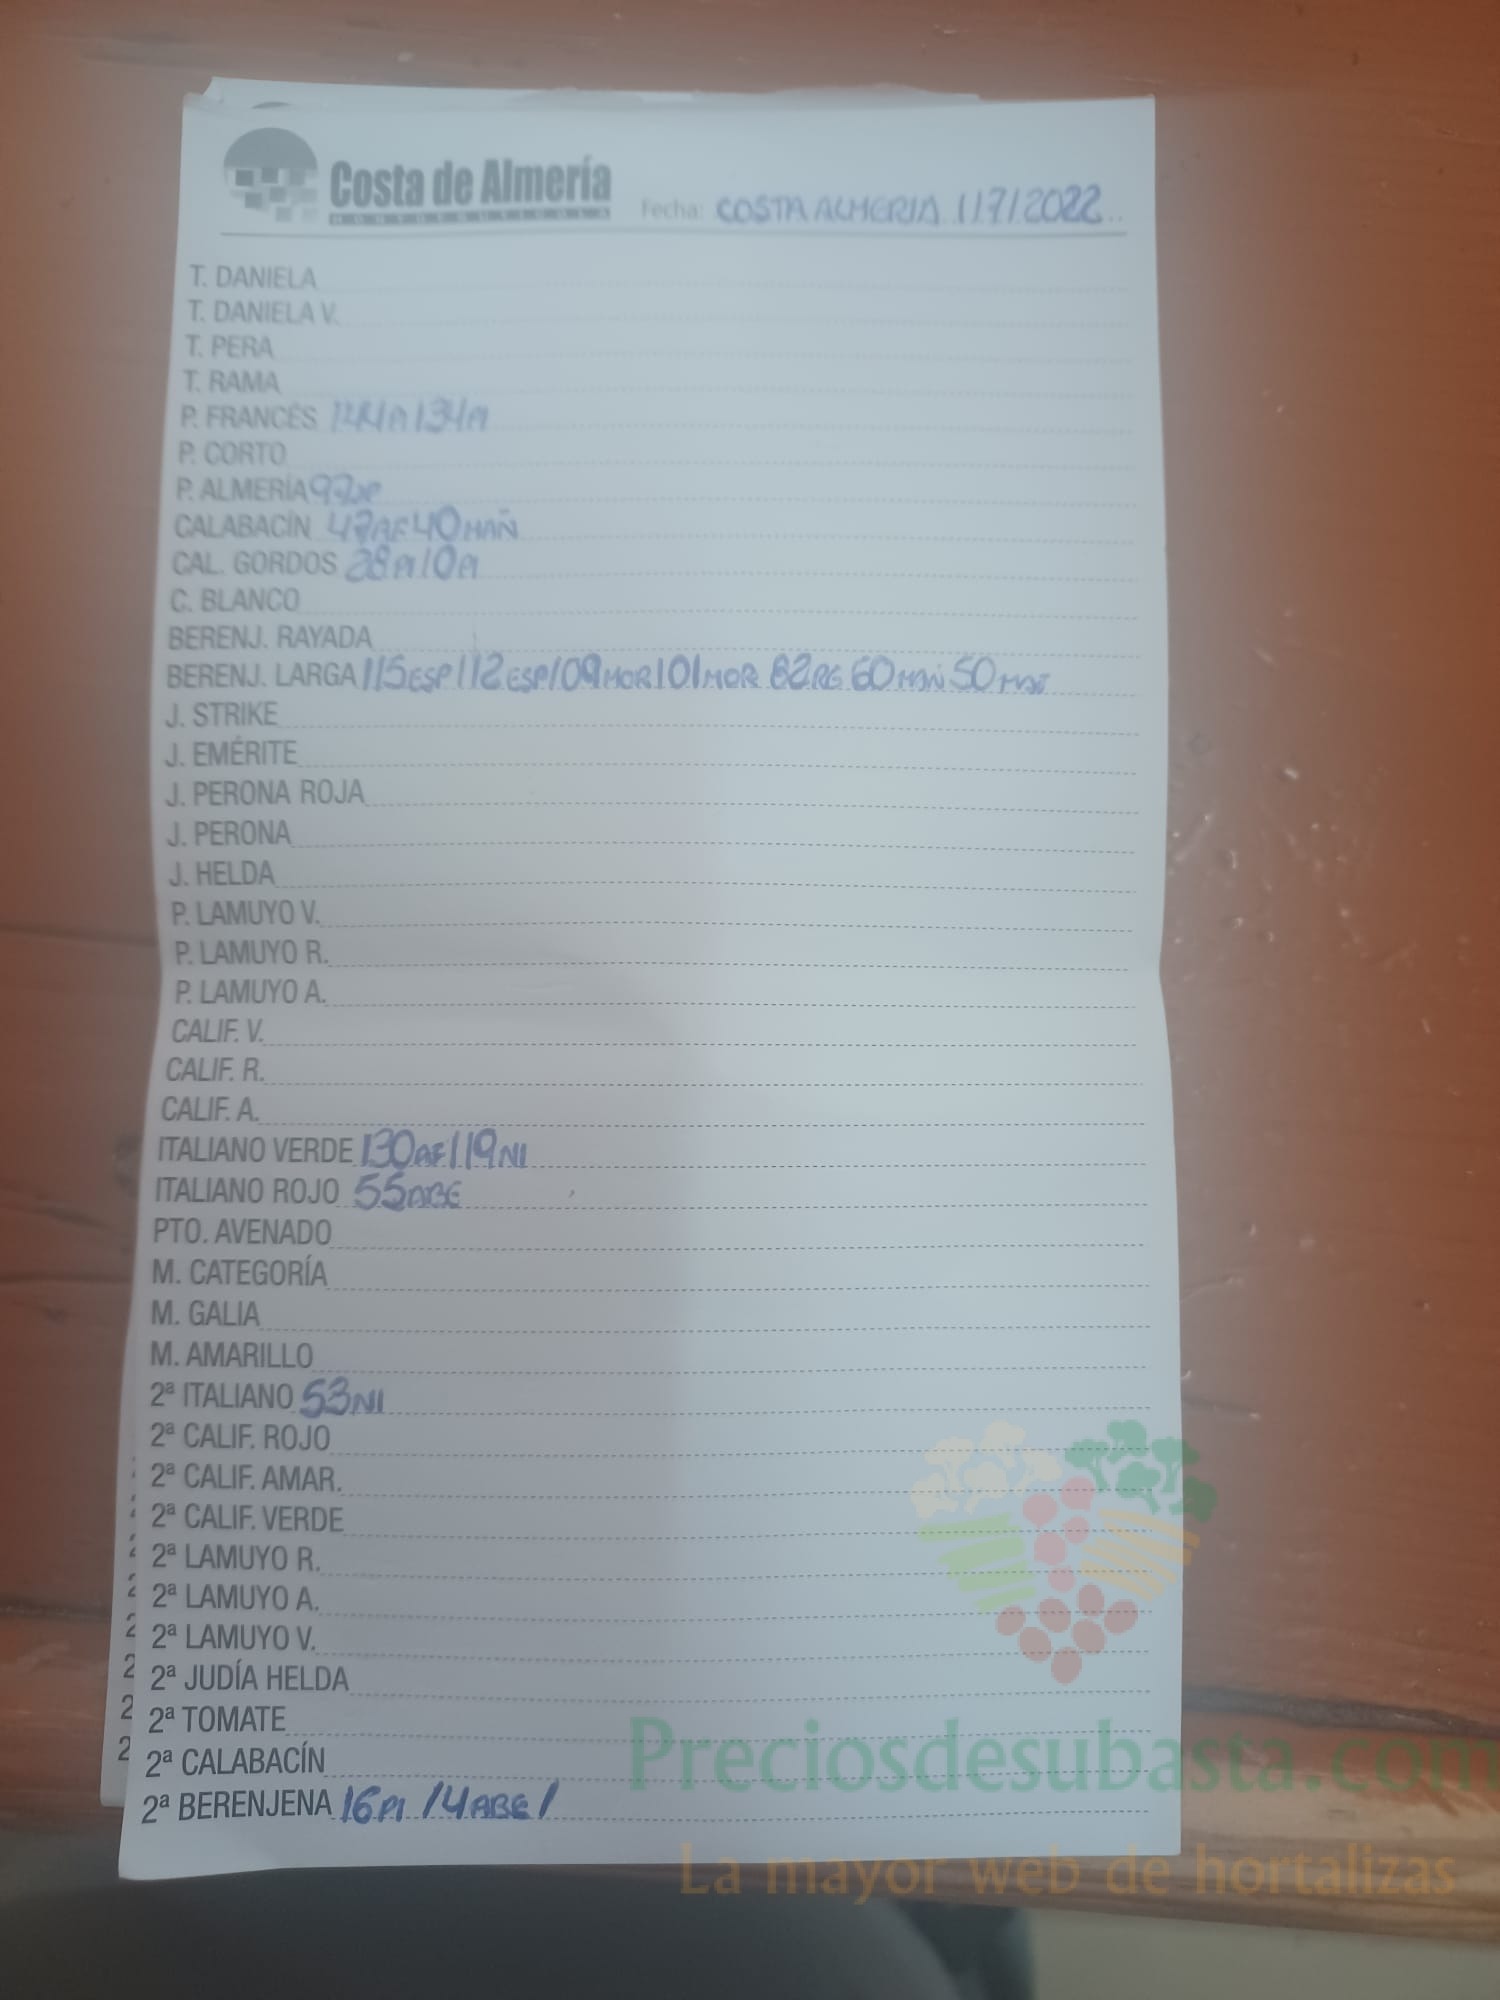 Costa de Almería
Fecha: COSTA ALMERIA 1/7/2022
T. DANIELA
T. DANIELA V.
T. PERA
T. RAMA
P. FRANCÉS 144PI 134PI
P. CORTO
P. ALMERÍA 97
CALABACÍN 47AF 40MAÑ
CAL. GORDOS 28PI 10PI
C. BLANCO
BERENJ. RAYADA
BERENJ. LARGA 115ESP 112ESP 109MOR 101MOR 82RG 60MAÑ 50
J. STRIKE
J. EMÉRITE
J. PERONA ROJA
J. PERONA
J. HELDA
P. LAMUYO V.
P. LAMUYO R.
P. LAMUYO A.
CALIF. V.
CALIF. R.
CALIF. A.
ITALIANO VERDE 130AF 119NI
ITALIANO ROJO 55ABE
PTO. AVENADO
M. CATEGORÍA
M. GALIA
M. AMARILLO
2ª ITALIANO 53NI
2ª CALIF. ROJO
2ª CALIF. AMAR.
2ª CALIF. VERDE
2ª LAMUYO R.
2ª LAMUYO A.
2ª LAMUYO V.
2ª JUDÍA HELDA
2ª TOMATE
2ª CALABACÍN
2ª BERENJENA 16PI 14ABE /
Preciosdesubasta.com
La mayor web de hortalizas